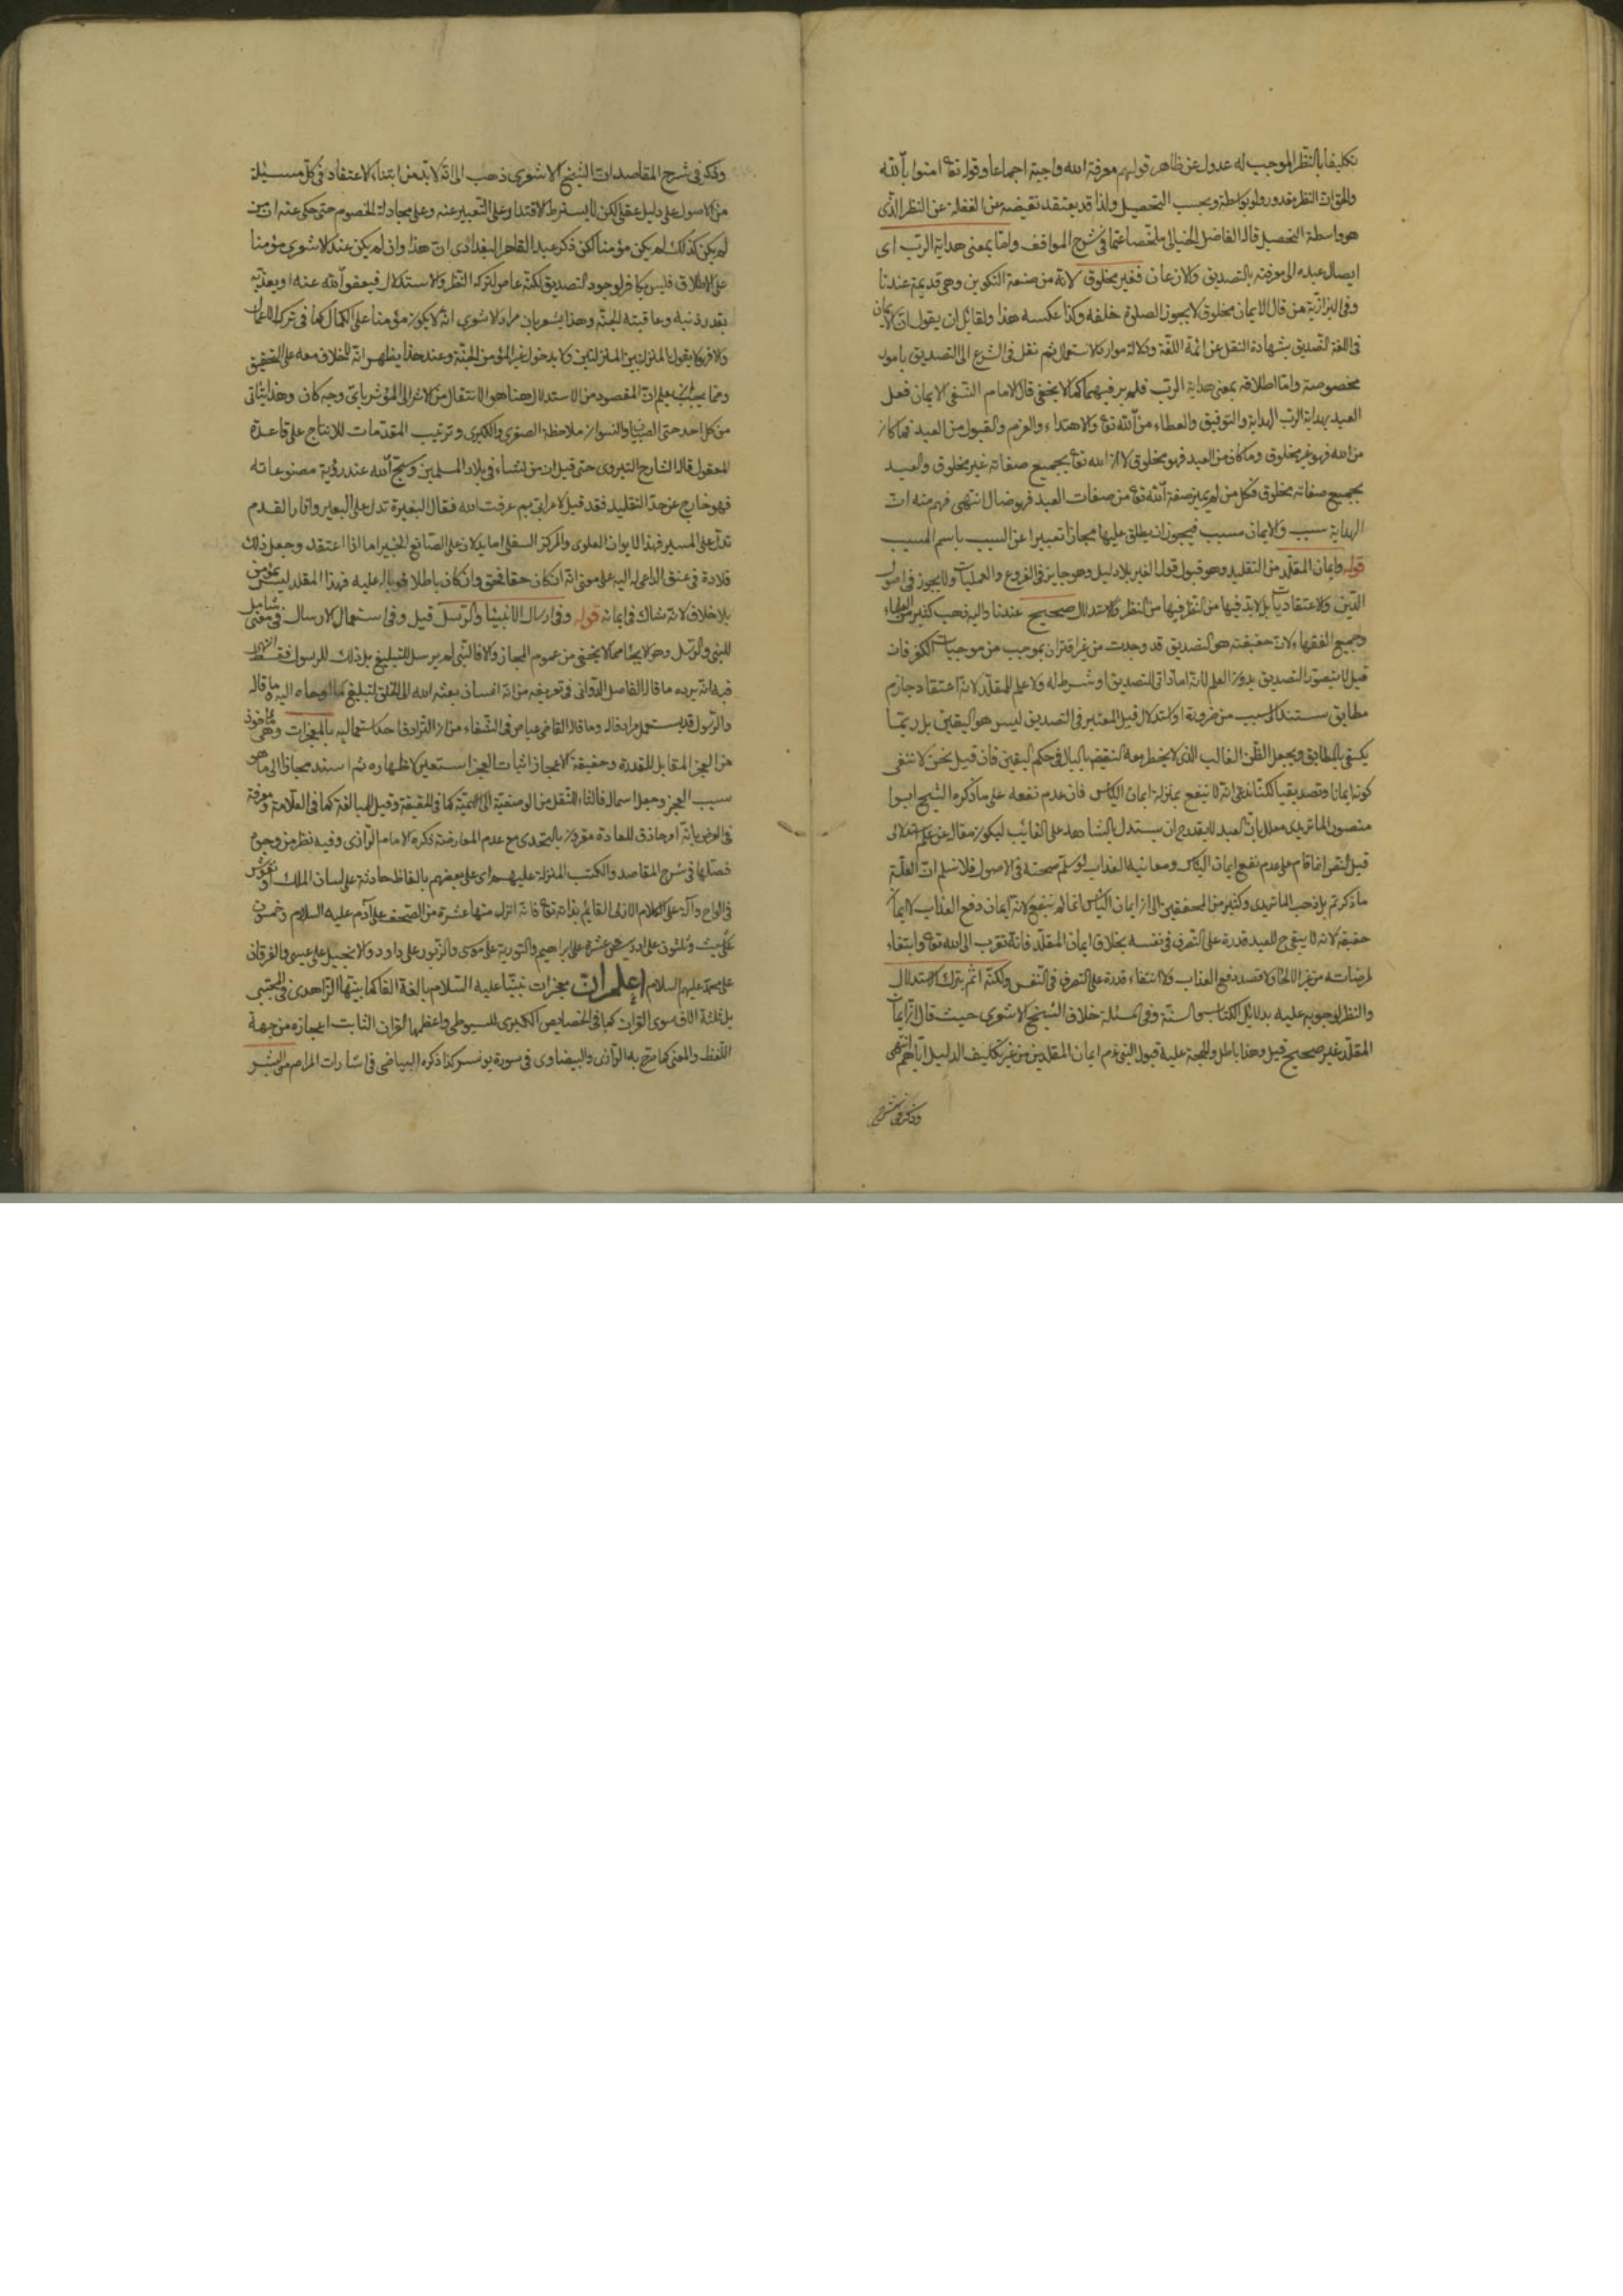 تكليفا بالنظر الموجب له عدول عن ظاهر قولهم معرفة الله واجبة اجماعا وقوله تعا امنوا بالله
والحق ان النظر مقدور ولو بواسطة وبحسب التحصيل ولذا قد يعتقد نقيضه عن الغفلة عن النظر الذى
هو واسطة التحصيل قاله الفاضل الخيالى ملخصا عما فى شرح المواقف واما بمعنى هداية الرب اى
ايصال عبده الى معرفته بالتصديق والاذعان فغير مخلوق لانه من صنعة التكوين وهى قديمة عندنا
وفى البزازية من قال الايمان مخلوق لايجوز الصلوة خلفه وكذا عكسه هذا ولقائل ان يقول ان الايمان
فى اللغة التصديق بشهادة النقل عن ائمة اللغة ودلالة موارد الاستعمال ثم نقل فى الشرع الى التصديق بامور
مخصوصة واما اطلاقه بمعنى هداية الرب فلم ير فيهما كما لا يخفى قال الامام النسفى الايمان فعل
العبد بهداية الرب الهداية والتوفيق والعطاء من الله تعا والاهتداء والعزم والقبول من العبد فما كان
من الله فهو غير مخلوق وما كان من العبد فهو مخلوق لان الله تعا بجميع صفاته غير مخلوق والعبد
بجميع صفاته مخلوق فكل من لم يميز صفة الله تعا من صفات العبد فهو ضال انتهى فهم منه ان
الهداية سبب والايمان مسبب فيجوز ان يطلق عليها مجازا تعبيرا عن السبب باسم المسبب
قوله وايمان المقلد من التقليد وهو قبول قول الغير بلا دليل وهو جايز فى الفروع والعمليات ولايجوز فى اصول
الدين والاعتقاديات بل لابد فيها من النظر فيها من النظر والاستدلال صحيح عندنا واليه ذهب كثير من العلماء
وجميع الفقهاء لان حقيقته هو التصديق قد وجدت من غير اقتران بموجب من موجبات الكفر فان
قيل لا يتصور التصديق بدون العلم لانه اما ذاتى للتصديق او شرط له ولا علم للمقلد لانه اعتقاد جازم
مطابق يستند الى سبب من ضرورة او استدلال قيل المعتبر فى التصديق ليس هو اليقين بل ربما
يكتفى بالمطابق ويجعل الظن الغالب الذى لا يخطر معه النقيض بالبال فى حكم اليقين فان قيل نحن لا ننفى
كونه ايمانا وتصديقيا لكننا ندعى انه لا ينفع بمنزلة ايمان الياس فان عدم نفعه على ما ذكره الشيخ ابوا
منصور الماتريدى معلل بان العبد لا يقدر ح ان يستدل بالشاهد على الغائب ليكون مقاله عن علم استدلالى
قيل النص انما قام على عدم نفع ايمان الياس ومعاينه العذاب لو سلم صحته فى الاصول فلا نسلم ان العلة
ما ذكرتم بل ذهب الماتريدى وكثير من المحققين الى ان ايمان الياس انما لم ينفع لانه ايمان دفع العذاب لا ايمان
حقيقة لانه لا يبقى ح للعبد قدرة على التصرف فى نفسه بخلاف ايمان المقلد فانه تقرب الى الله تعا وابتغاء
لمرضاته من غير الالجاء ولا قصد دفع العذاب ولا انتفاء قدرة على التصرف فى النفس ولكنه اثم بترك الاستدلال
والنظر لوجوبه عليه بدلائل الكتاب والسنة وفى المسئلة خلاف الشيخ الاشعرى حيث قال ان ايمان
المقلد غير صحيح قيل وهذا باطل والحجة عليه قبول النبى عم ايمان المقلدين من غير تكليف الدليل اياهم انتهى
وذكر فى شرح
وذكر فى شرح المقاصد ان الشيخ الاشعرى ذهب الى انه لا بد من ابتناء الاعتقاد فى كل مسئلة
من الاصول على دليل عقلى لكن لا يشترط الاقتدار على التعبير عنه وعلى مجادلة الخصوم حتى حكى عنه ان من
لم يكن كذلك لم يكن مؤمنا لكن ذكر عبد القاهر البغدادى ان هذا وان لم يكن عند الاشعرى مؤمنا
على الاطلاق فليس بكافر لوجود التصديق لكنه عاص لتركه النظر والاستدلال فيعفو الله عنه او يعذبه
بقدر ذنبه وعاقبته الجنة وهذا يشعر بان مراد الاشعرى انه لا يكون مؤمنا على الكمال كما فى ترك الاعمال
والا فهو لا يقول بالمنزلة بين المنزلتين ولا بدخول غير المؤمن الجنة وعند هذا يظهر انه لا خلاف معه على التحقيق
ومما يجب ان يعلم ان المقصود من الاستدلال هنا هو الانتقال من الاثر الى المؤثر باى وجه كان وهذا يتاتى
من كل احد حتى الصبيان والنسوان ملاحظة الصغرى والكبرى وترتيب المقدمات للانتاج على قاعدة
المعقول قاله الشارح حتى قيل ان من نشاء فى بلاد المسلمين وسبح الله عند رؤية مصنوعاته
فهو خارج عن حد التقليد فقد قيل لاعرابى بم عرفت الله فقال البعرة تدل على البعير واثار القدم
تدل على المسير فهذا الايوان العلوى والمركز السفلى اما يدلان على الصانع الخبير اما اذا اعتقد وجعل ذلك
قلادة فى عنق الداعى له اليه على معنى انه ان كان حقا فحق وان كان باطلا فوباله عليه فهذا المقلد ليس بمؤمن
بلا خلاف لانه شاك فى ايمانه قوله وفى ارسال الانبياء والرسل قيل وفى استعمال الارسال فى معنى شامل
للنبى والرسل وهو لا يخفى من عموم المجاز والا فالنبى لم يرسل للتبليغ بل ذلك للرسول فقط
فيه انه يرده ما قاله الفاضل الدوانى فى تعريفه من انه انسان بعثه الله الى الخلق لتبليغ ما اوحاه اليه
والرسول قد يستعمل مرادفا له وما قاله القاضى عياض فى الشفاء من ان الترادف احد استعماليه بالمعجزات وهى ماخوذ
من العجز المقابل للقدرة وحقيقة الاعجاز اثبات العجز استعير لاظهاره ثم اسند مجازا الى ما هو
سبب العجز وجعل اسما له فالتاء للنقل من الوصفية الى الاسمية كما فى الحقيقة وقيل للمبالغة كما فى العلامة ومعرفة
فى العرف بانه امر خارق للعادة مقرون بالتحدى مع عدم المعارضة ذكره الامام الرازى وفيه نظر من وجوه
فصلها فى شرح المقاصد والكتب المنزلة عليهم اى على بعضهم بالفاظ حادثة على لسان الملك او نقوش
فى الواح دالة على الكلام الازلى القايم بذاته تعا فانه انزل منها عشرة من الصحف على آدم عليه السلام وخمسون
على شيث وثلثون على ادريس وعشرة على ابراهيم والتورية على موسى والزبور على داود والانجيل على عيسى والفرقان
على محمد عليهم السلام اعلم ان معجزات نبينا عليه السلام بالغة الفا كما بينها الزاهدى فى المجتبى
بل ثلثة الاف سوى القران كما فى الخصايص الكبرى للسيوطى واعظمها القران الثابت اعجازه من جهة
اللفظ والمعنى كما صرح به الرازى والبيضاوى فى سورة يونس كذا ذكره البياضى فى اشارات المرام